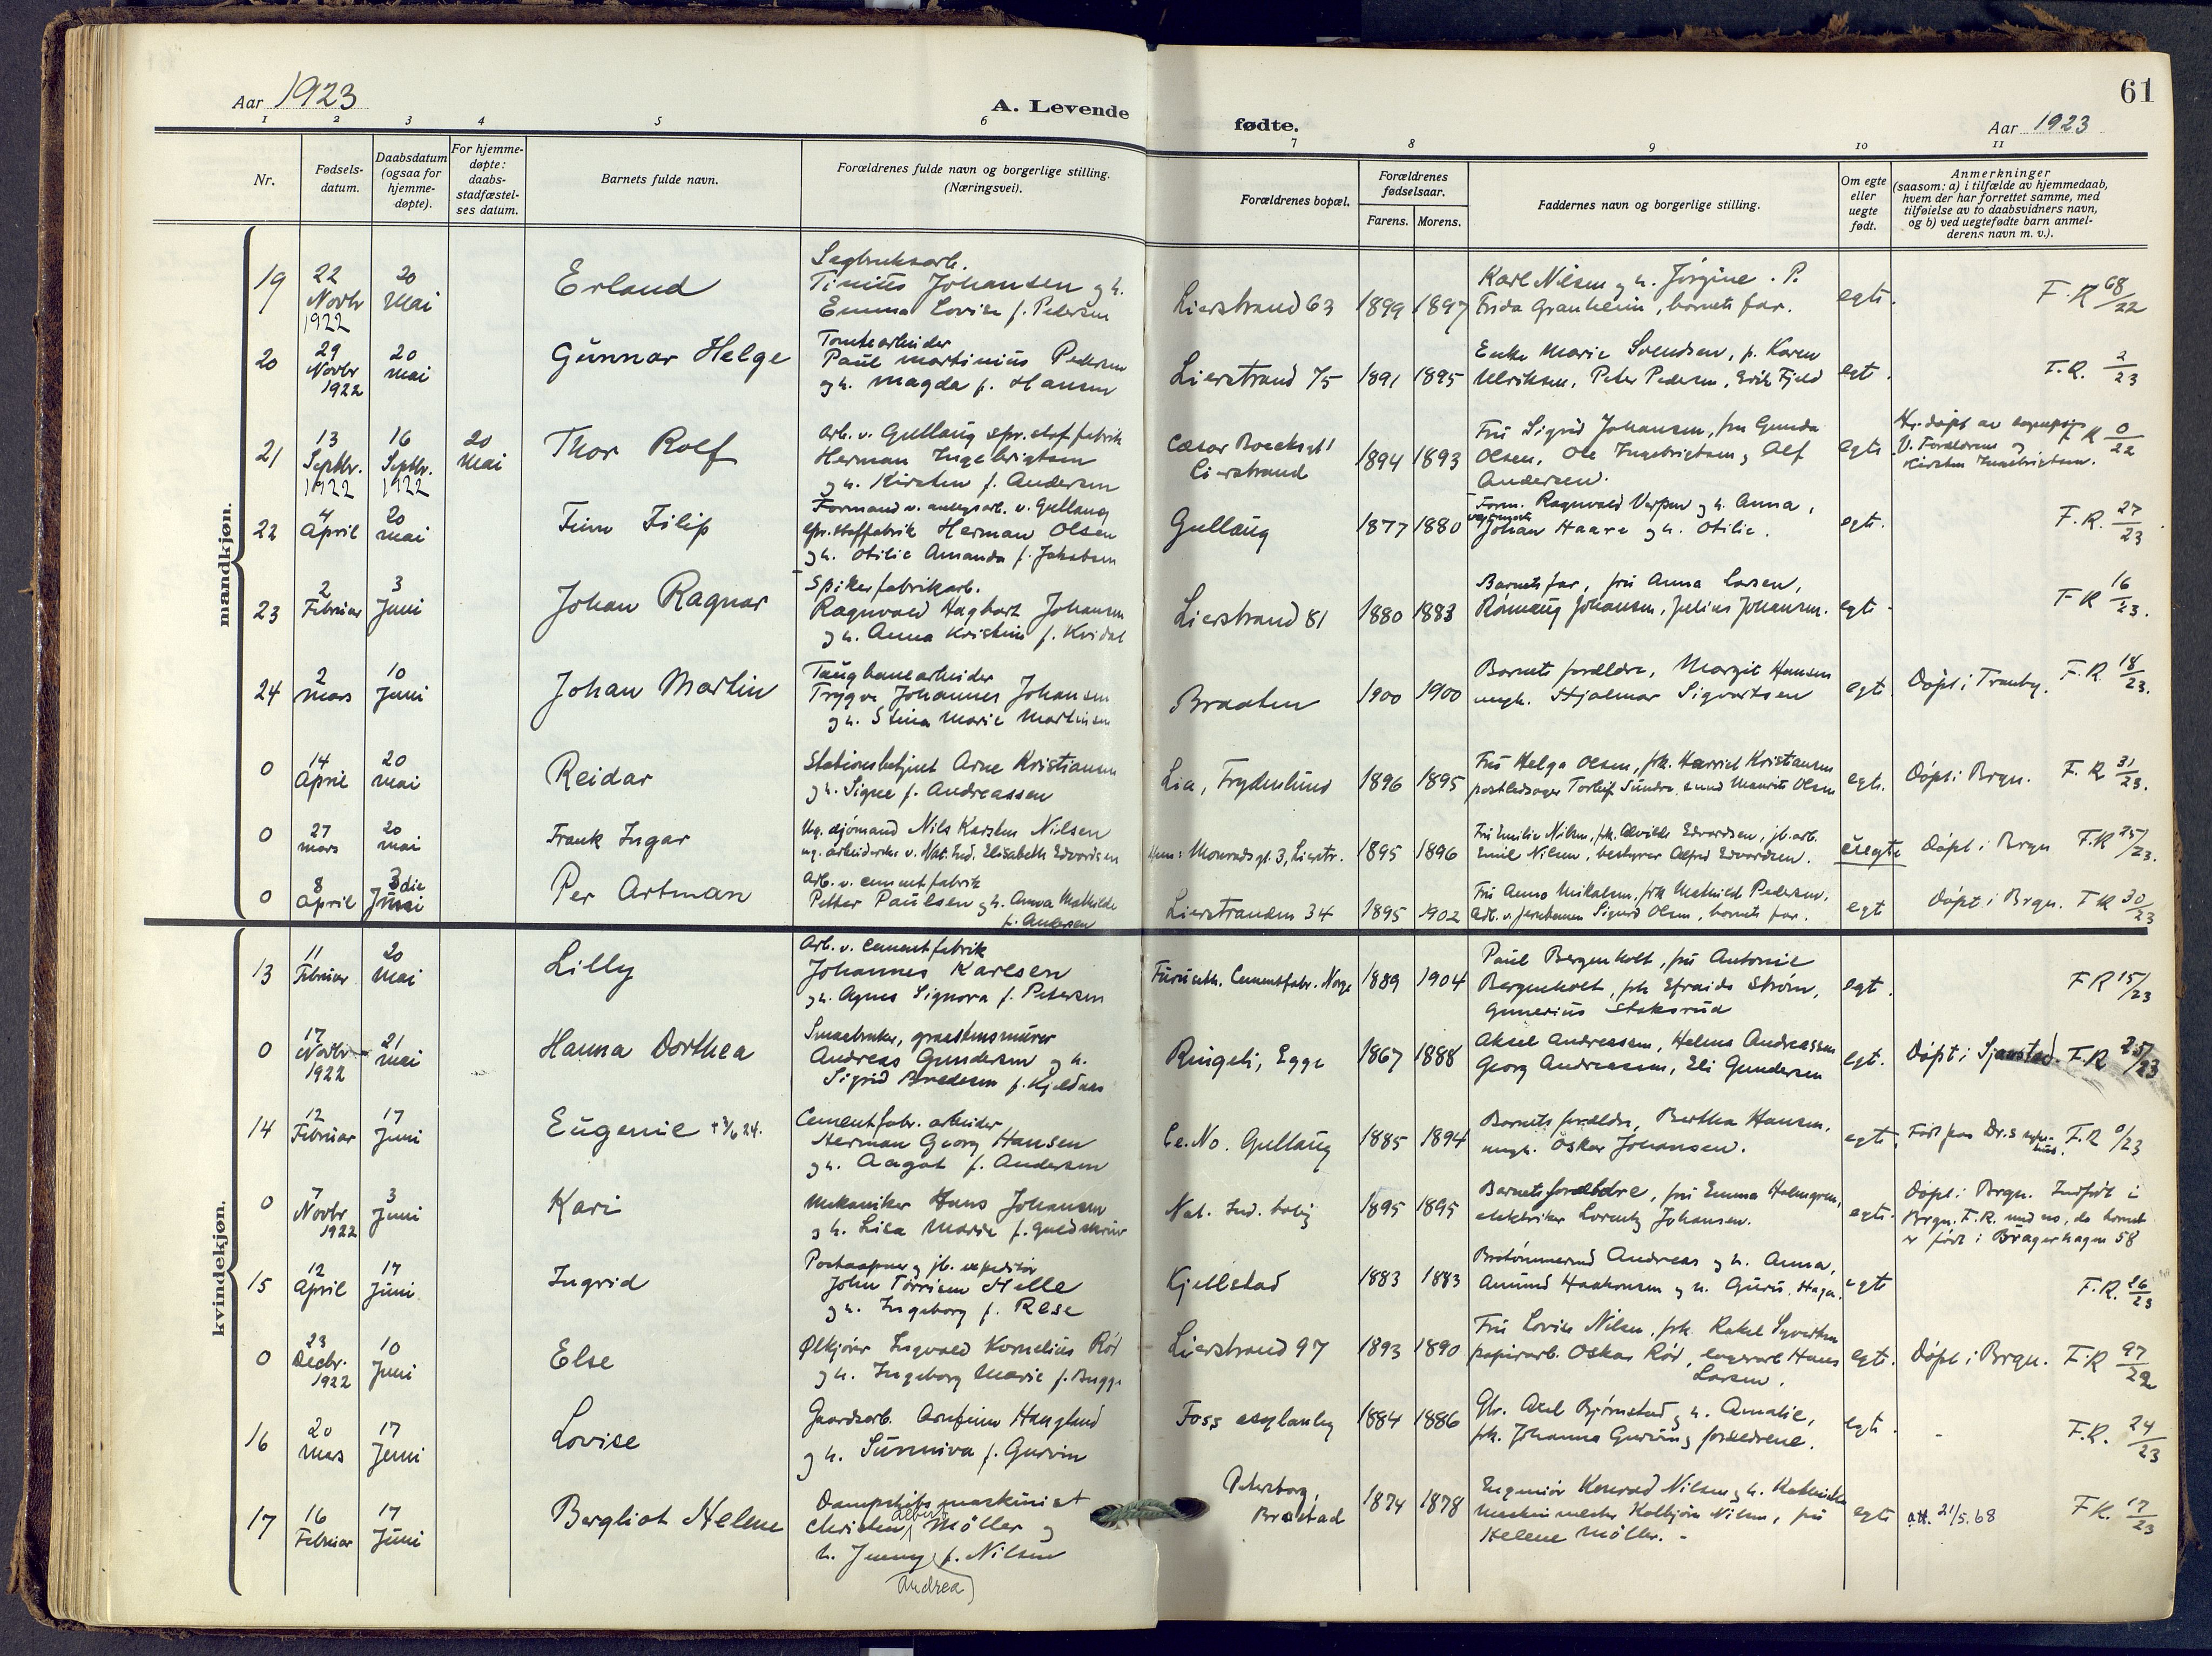 Aar 1923
A. Levende
fødte.
Aar 1923
61
1 2 3 4 5 6 7 8 9 10 11
Nr.
Fødsels-
datum.
Daabsdatum
(ogsaa for
hjemme-
døpte).
For hjemme-
døpte:
daabs-
stadfæstel-
ses datum.
Barnets fulde navn.
Forældrenes fulde navn og borgerlige stilling.
(Næringsvei).
Forældrenes bopæl.
Forældrenes
fødselsaar.
Farens. Morens.
Faddernes navn og borgerlige stilling.
Om egte
eller
uegte
født.
Anmerkninger
(saasom: a) i tilfælde av hjemmedaab,
hvem der har forrettet samme, med
tilføielse av to daabsvidners navn,
og b) ved uegtefødte barn anmel-
derens navn m. v.).
mandkjøn.
19
22 Novbr 1922
20 Mai
Erland
Sagbruksarb.
Tinius Johansen og h.
Emma Lovise f. Pedersen
Lierstrand 63
1899 1897
Karl Nilsen og h. Jørgine. P.
Frida Granheim, barnets far.
egte.
F.R 68/22
20
29 Novbr 1922
20 mai
Gunnar Helge
Tomtearbeider
Paul Martinius Pedersen
og h. Magda f. Hansen
Lierstrand 75
1891 1895
Enke Marie Svendsen, f. Karen
Ulriksen, Peter Pedersen, Erik Fjeld
egt.
F.R. 2/23
21
13 Septbr. 1922
16 Septbr. 1922
20 Mai
Thor Rolf
Arb. v. Gullaug spr.stof fabrik
Herman Ingebrigtsen
og h. Kirsten f. Andersen
Lierstrand
1894 1893
Fru Sigrid Johansen, fru Gunda
Olsen, Ole Ingebrigtsen, Alf
Andersen.
egte
Kirsten Ingebrigtsen.
R 0/22
22
4 April
20 mai
Finn Filip
Formand v. anlegsarb. v. Gullaug
spr.stoffabrik Herman Olsen
og h. Otilie Amanda f. Jakobsen
Gullaug
1877 1880
Form. Ragnvald Verpen og h. Anna,
Johan Haare og h. Otilie.
egte.
F.R. 27/23
23
2 Februar
3 Juni
Johan Ragnar
Spikerfabrikarb.
Ragnvald Hagbart Johansen
og h. Anna Kristine f. Kvidal
Lierstrand 81
1880 1883
Barnets far, fru Anna Larsen,
Rønnaug Johansen, Julius Johansen.
egte
F R 16/23.
24
2 mars
10 Juni
Johan Martin
Taugbanearbeider
Trygve Johannes Johansen
og h. Stina Marie Martinsen
Braaten
1900 1900
Barnets forældre, Margit Hansen
ungk. Hjalmar Sigvartsen
egte
Døpt i Tranby. F.R. 18/23.
0
14 April
20 mai
Reidar
Stationsbetjent Arne Kristiansen
og h. Signe f. Andreassen
Lia, Frydenlund
1896 1895
Fru Helga Olsen, frk. Harriet Kristiansen
egte.
Døpt i Brgn. F. R 31/23.
0
27 mars
20 mai
Frank Ingar
Ug. sjømand Nils Karsten Nilsen
ug. arbeiderske v. Nat. Ind. Elisabeth Edvardsen
1895 1896
Fru Emilie Nilsen, frk. Alvilde Edvardsen, jb.arb.
Emil Nilsen, bestyrer Alfred Edvardsen.
uegte
Døpt i Brgn F.R 25/23.
0
8 April
3die Juni
Per Artman
Arb. v. cementfabrik
Petter Paulsen og h. Anna Mathilde
f. Andersen
Lierstranden 34
1895 1902
Fru Anna Mikalsen, frk Mathild Pedersen,
Arb. v. jernbanen Sigurd Olsen, barnets far.
egt
Døpt i Brgn. F R 30/23
kvindekjøn.
13
11 Februar
20 Mai
Lilly
Arb. v. Cementfabrik
Johannes Karlsen
og h. Agnes Signora f. Petersen
Furuseth. Cementfabr. Norge
1889 1904
Paul Bergenholt, fru Antonie
Bergenholt, frk Efraida Strøm,
Gunerius Stoksrud
egt.
F R 15/23
0
17 Novbr 1922
21 mai
Hanna Dorthea
Smaabruker, graastensmurer
Andreas Gundersen og h.
Sigrid Bredesen f. Kjeldaas
Ringeli, Egge
1867 1888
Aksel Andreassen, Helene Andreassen
Georg Andreassen, Eli Gundersen
egt.
Døpt i Sjaastad. F.R 25/23
14
12 Februar
17 Juni
Eugenie
Cementfabr. arbeider
Herman Georg Hansen
og h. Aagot f. Andersen
Ce. No. Gullaug
1885 1894
Barnets forældre, Bertha Hansen,
ungk. Oskar Johansen.
egte.
F.R 0/23
0
7 Novbr 1922
3 Juni
Kari
Mekaniker Hans Johansen
og h. Lisa Marie f.
Nat. Ind. bolig
1895 1895
Barnets forældre, fru Emma Holmgren,
elektriker Lorentz Johansen.
egte.
Døpt i Brgn. Indført i
Brgn. F.R. und no, da barnet
er født i Bragernagen 58
15
12 April
17 Juni
Ingrid
Postaapner og jb. expeditør
John Tørrisen Helle
og h. Ingeborg f. Rese
Kjellstad
1883 1883
Brotømmerud Andreas og h. Anna,
Amund Haakonsen og h. Guru, Haga.
egte
F.R. 26/23
0
23 Decbr. 1922
10 Juni
Else
Ølkjører Ingvald Kornelius Rød
og h. Ingeborg Marie f. Bugge
Lierstrand 97
1893 1890
Fru Lovise Nilsen, frk. Rakel Syvertsen
papirarb. Oskar Rød, lagerarb Hans
Larsen.
egte.
Døpt i Brgn. F.R 97/22
16
20 mars
17 Juni
Lovise
Gaardsarb. Arnfinn Haugland
og h. Sunniva f. Gurvin
Foss
1884 1886
Gbr. Axel Bjørnstad og h. Amalie,
frk. Johanna Gurvin og forældrene.
egte.
F.R. 24/23
17
16 Februar
17 Juni
Bergliot Helene
Dampskibsmaskinist
Christen Albert Møller og
h. Jenny Andrea f. Nilsen
Petersborg,
Brastad
1874 1878
Engeniør Konrad Nilsen og h. Kathinka
Maskinmester Kolbjørn Nilsen, fru
Helene Møller.
egte
att. 21/5.68
F R. 17/23